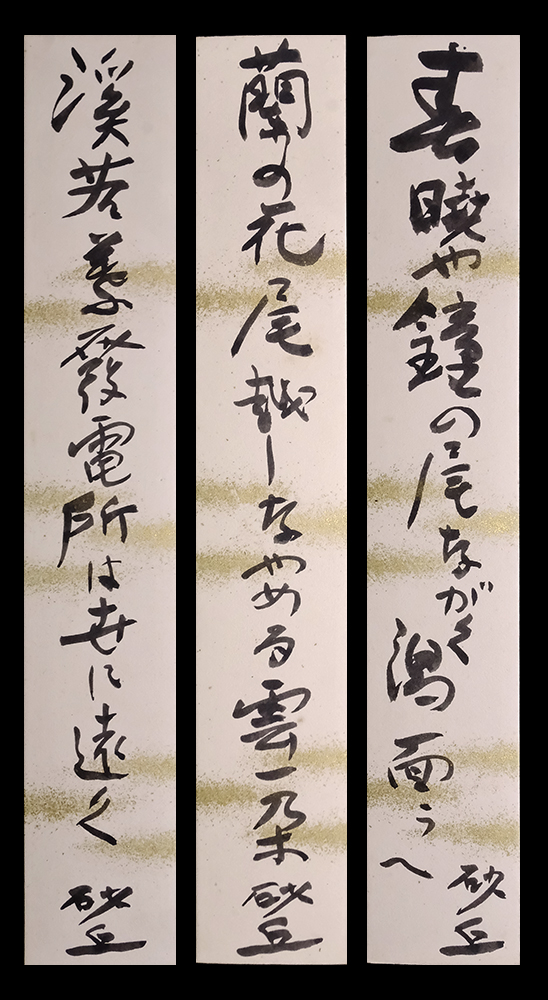 春曉や鐘の尾ながく潟面うへ
砂丘
蘭の花尾越しなやめる雲一朶
砂丘
溪若葉發電所は世に遠く
砂丘